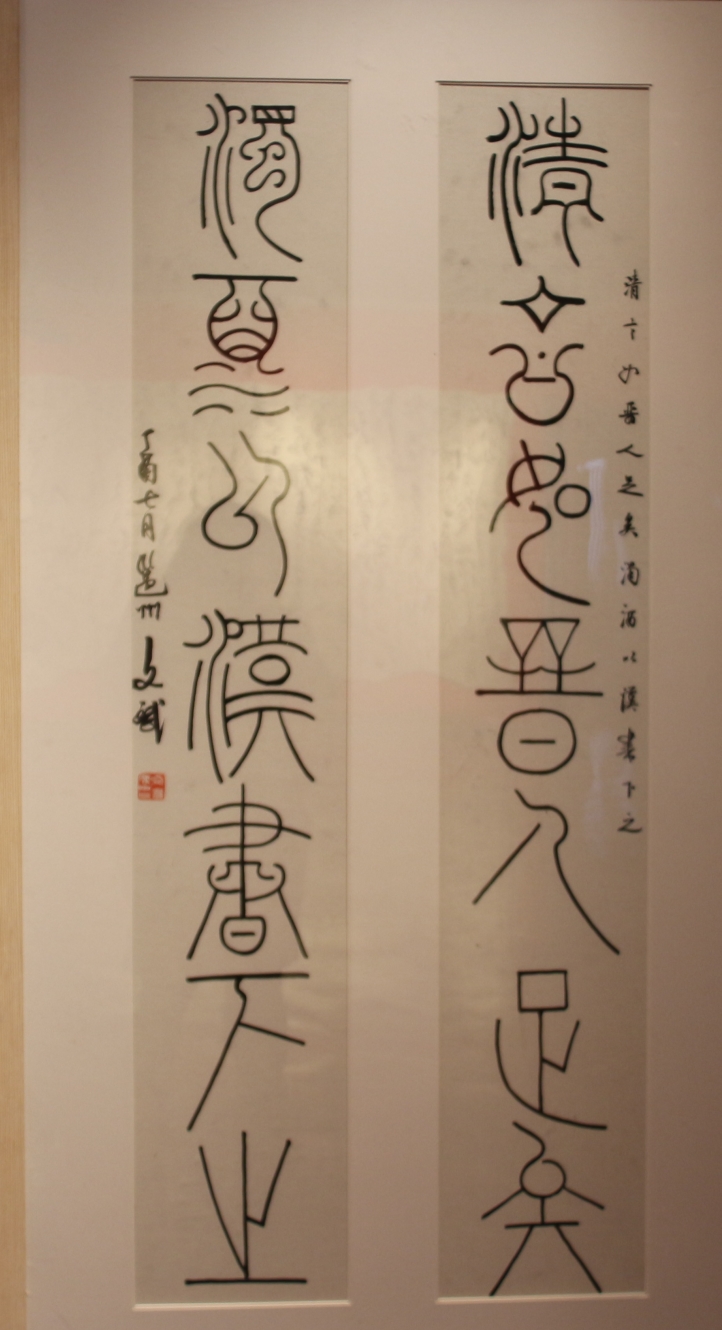 清言如晋人足矣
清言如晋人足矣濁酒以漢書下之
濁酒以漢書下之
丁酉七月邕州文斌